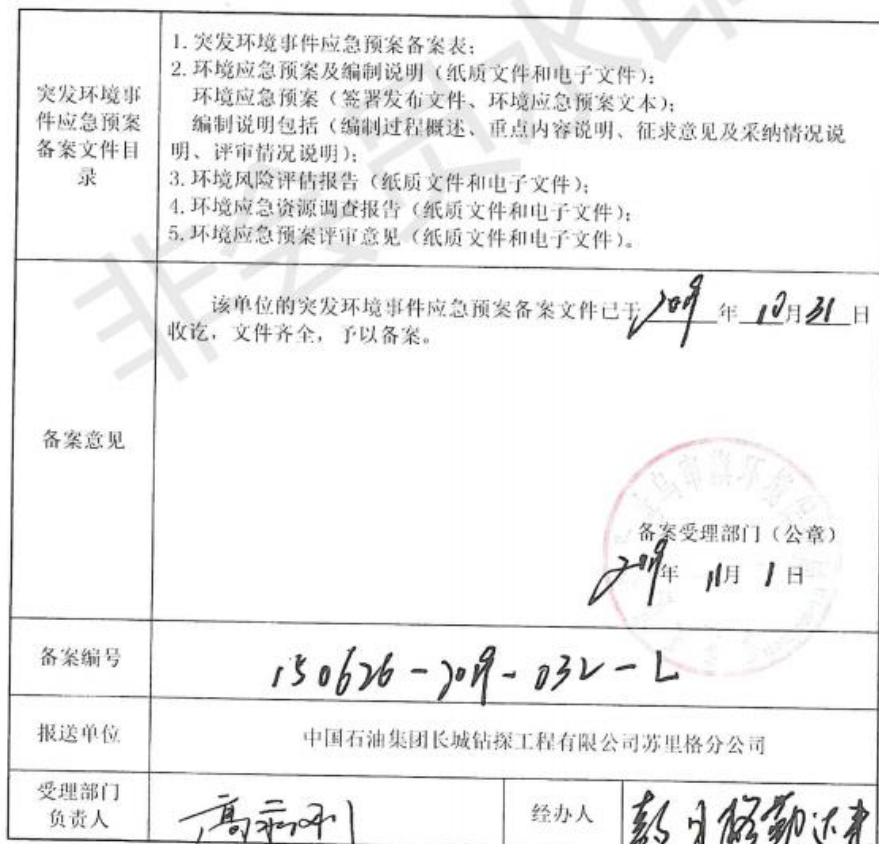 突发环境事
件应急预案
备案文件目
录
1. 突发环境事件应急预案备案表;
2. 环境应急预案及编制说明（纸质文件和电子文件）;
环境应急预案（签署发布文件、环境应急预案文本）;
编制说明包括（编制过程概述、重点内容说明、征求意见及采纳情况说
明、评审情况说明）;
3. 环境风险评估报告（纸质文件和电子文件）;
4. 环境应急资源调查报告（纸质文件和电子文件）;
5. 环境应急预案评审意见（纸质文件和电子文件）。
备案意见
该单位的突发环境事件应急预案备案文件已于2019年10月31日
收讫，文件齐全，予以备案。
备案受理部门（公章）
2019年 11月 1日
备案编号
150626-2019-032-L
报送单位
中国石油集团长城钻探工程有限公司苏里格分公司
受理部门
负责人
经办人